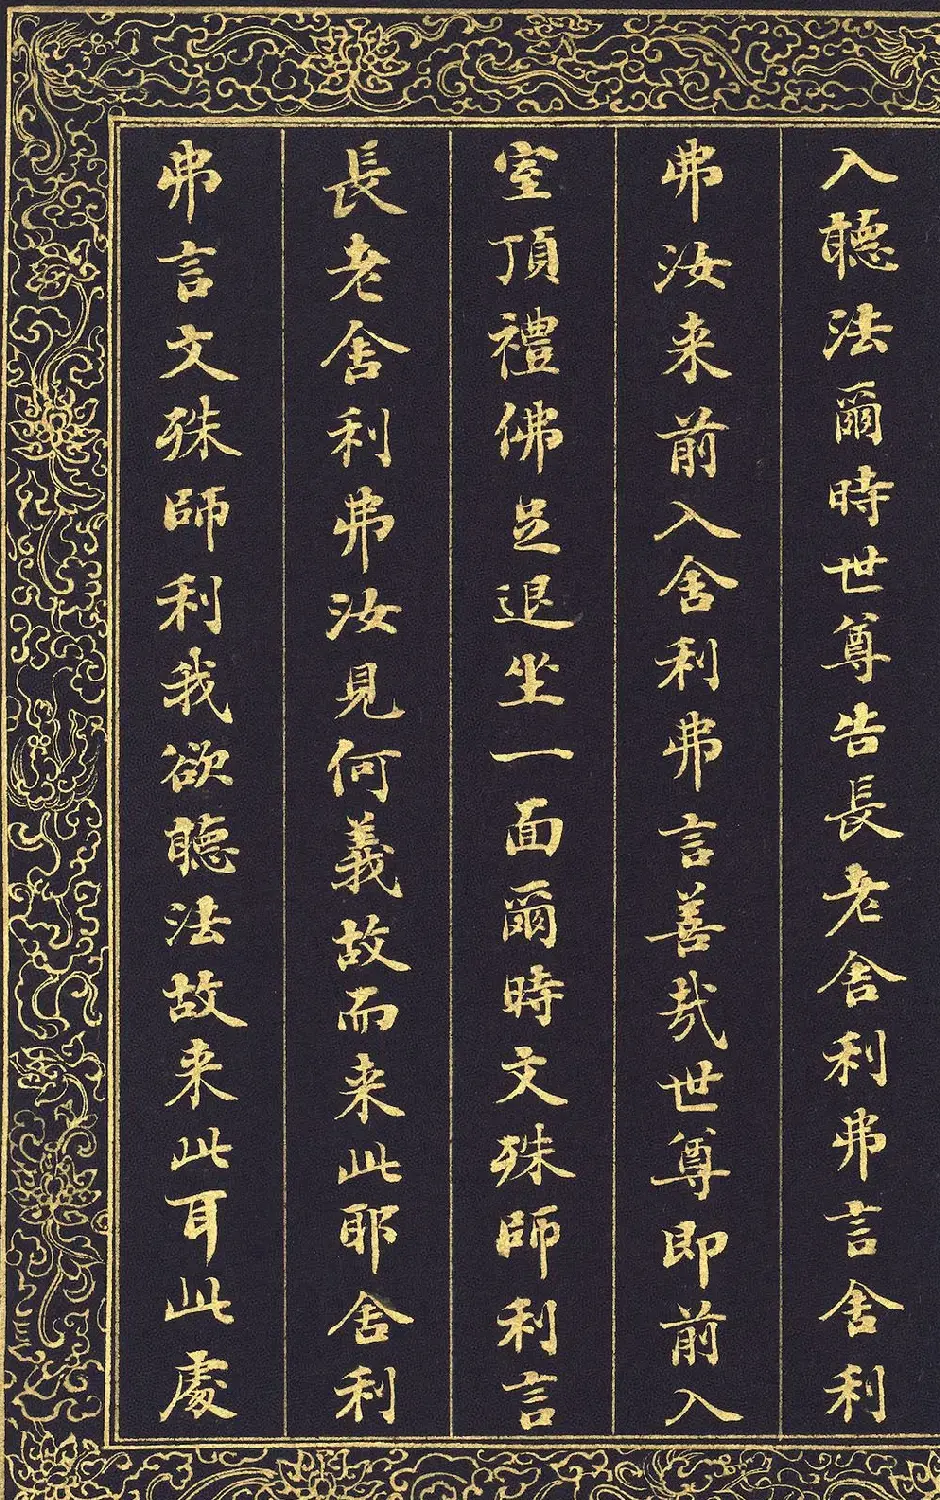 入聽法爾時世尊告長老舍利弗言舍利
弗汝来前入舍利弗言善哉世尊即前入
室頂禮佛足退坐一面爾時文殊師利言
長老舍利弗汝見何義故而来此耶舍利
弗言文殊師利我欲聽法故来此耳此處